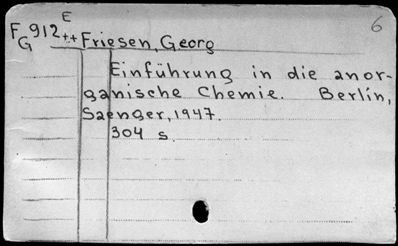 E
6
F 912++ Friesen, Georg
G
Einführung in die anor-
ganische Chemie. Berlin,
Saenger, 1947.
304 s.